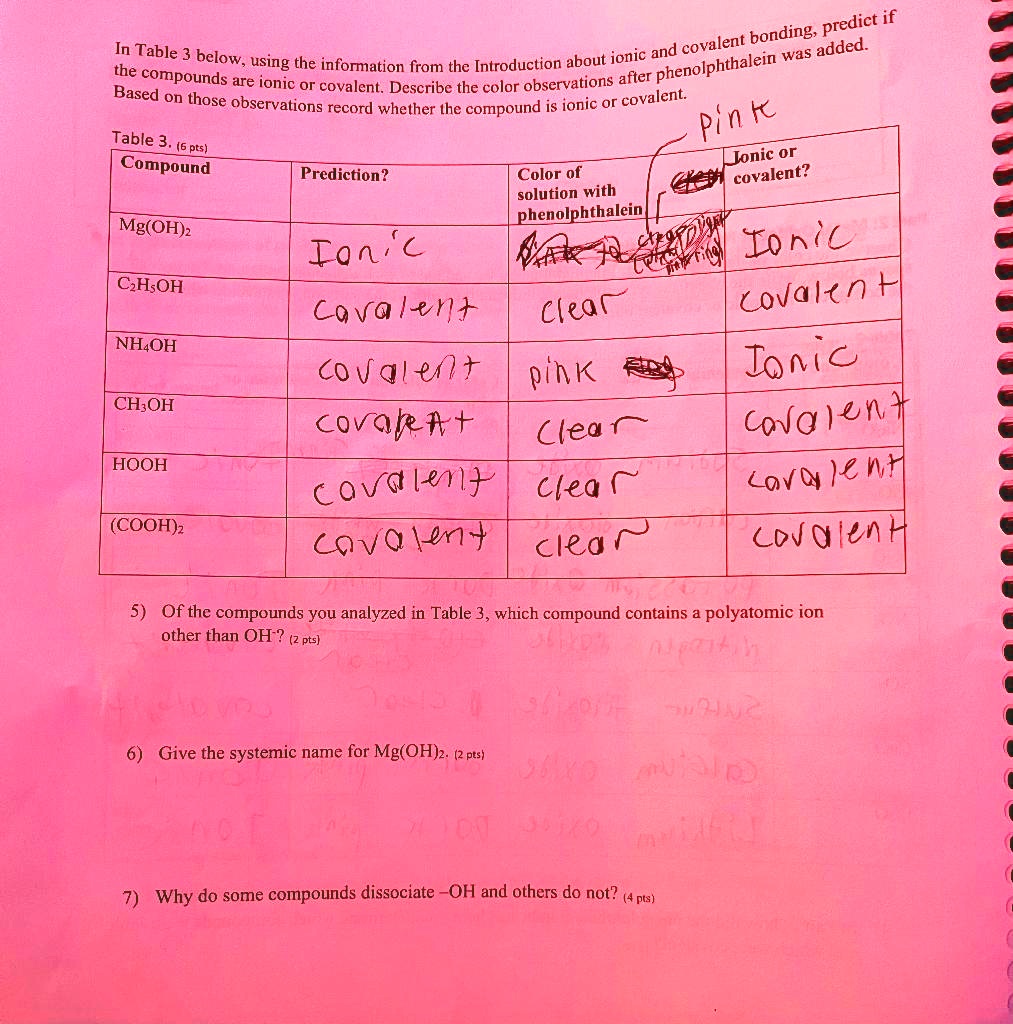 In Table 3 below, using the information from the Introduction about ionic and covalent bonding, predict if
the compounds are ionic or covalent. Describe the color observations after phenolphthalein was added.
Based on those observations record whether the compound is ionic or covalent.
pink
Table 3. (6 pts)
Compound
Prediction?
Color of
solution with
phenolphthalein
Ionic or
covalent?
Mg(OH)₂ Ionic Ionic
C₂H₅OH covalent clear covalent
NH₄OH covalent pink Ionic
CH₃OH covalent clear covalent
HOOH covalent clear covalent
(COOH)₂ covalent clear covalent
5) Of the compounds you analyzed in Table 3, which compound contains a polyatomic ion
other than OH⁻? (2 pts)
6) Give the systemic name for Mg(OH)₂. (2 pts)
7) Why do some compounds dissociate –OH and others do not? (4 pts)